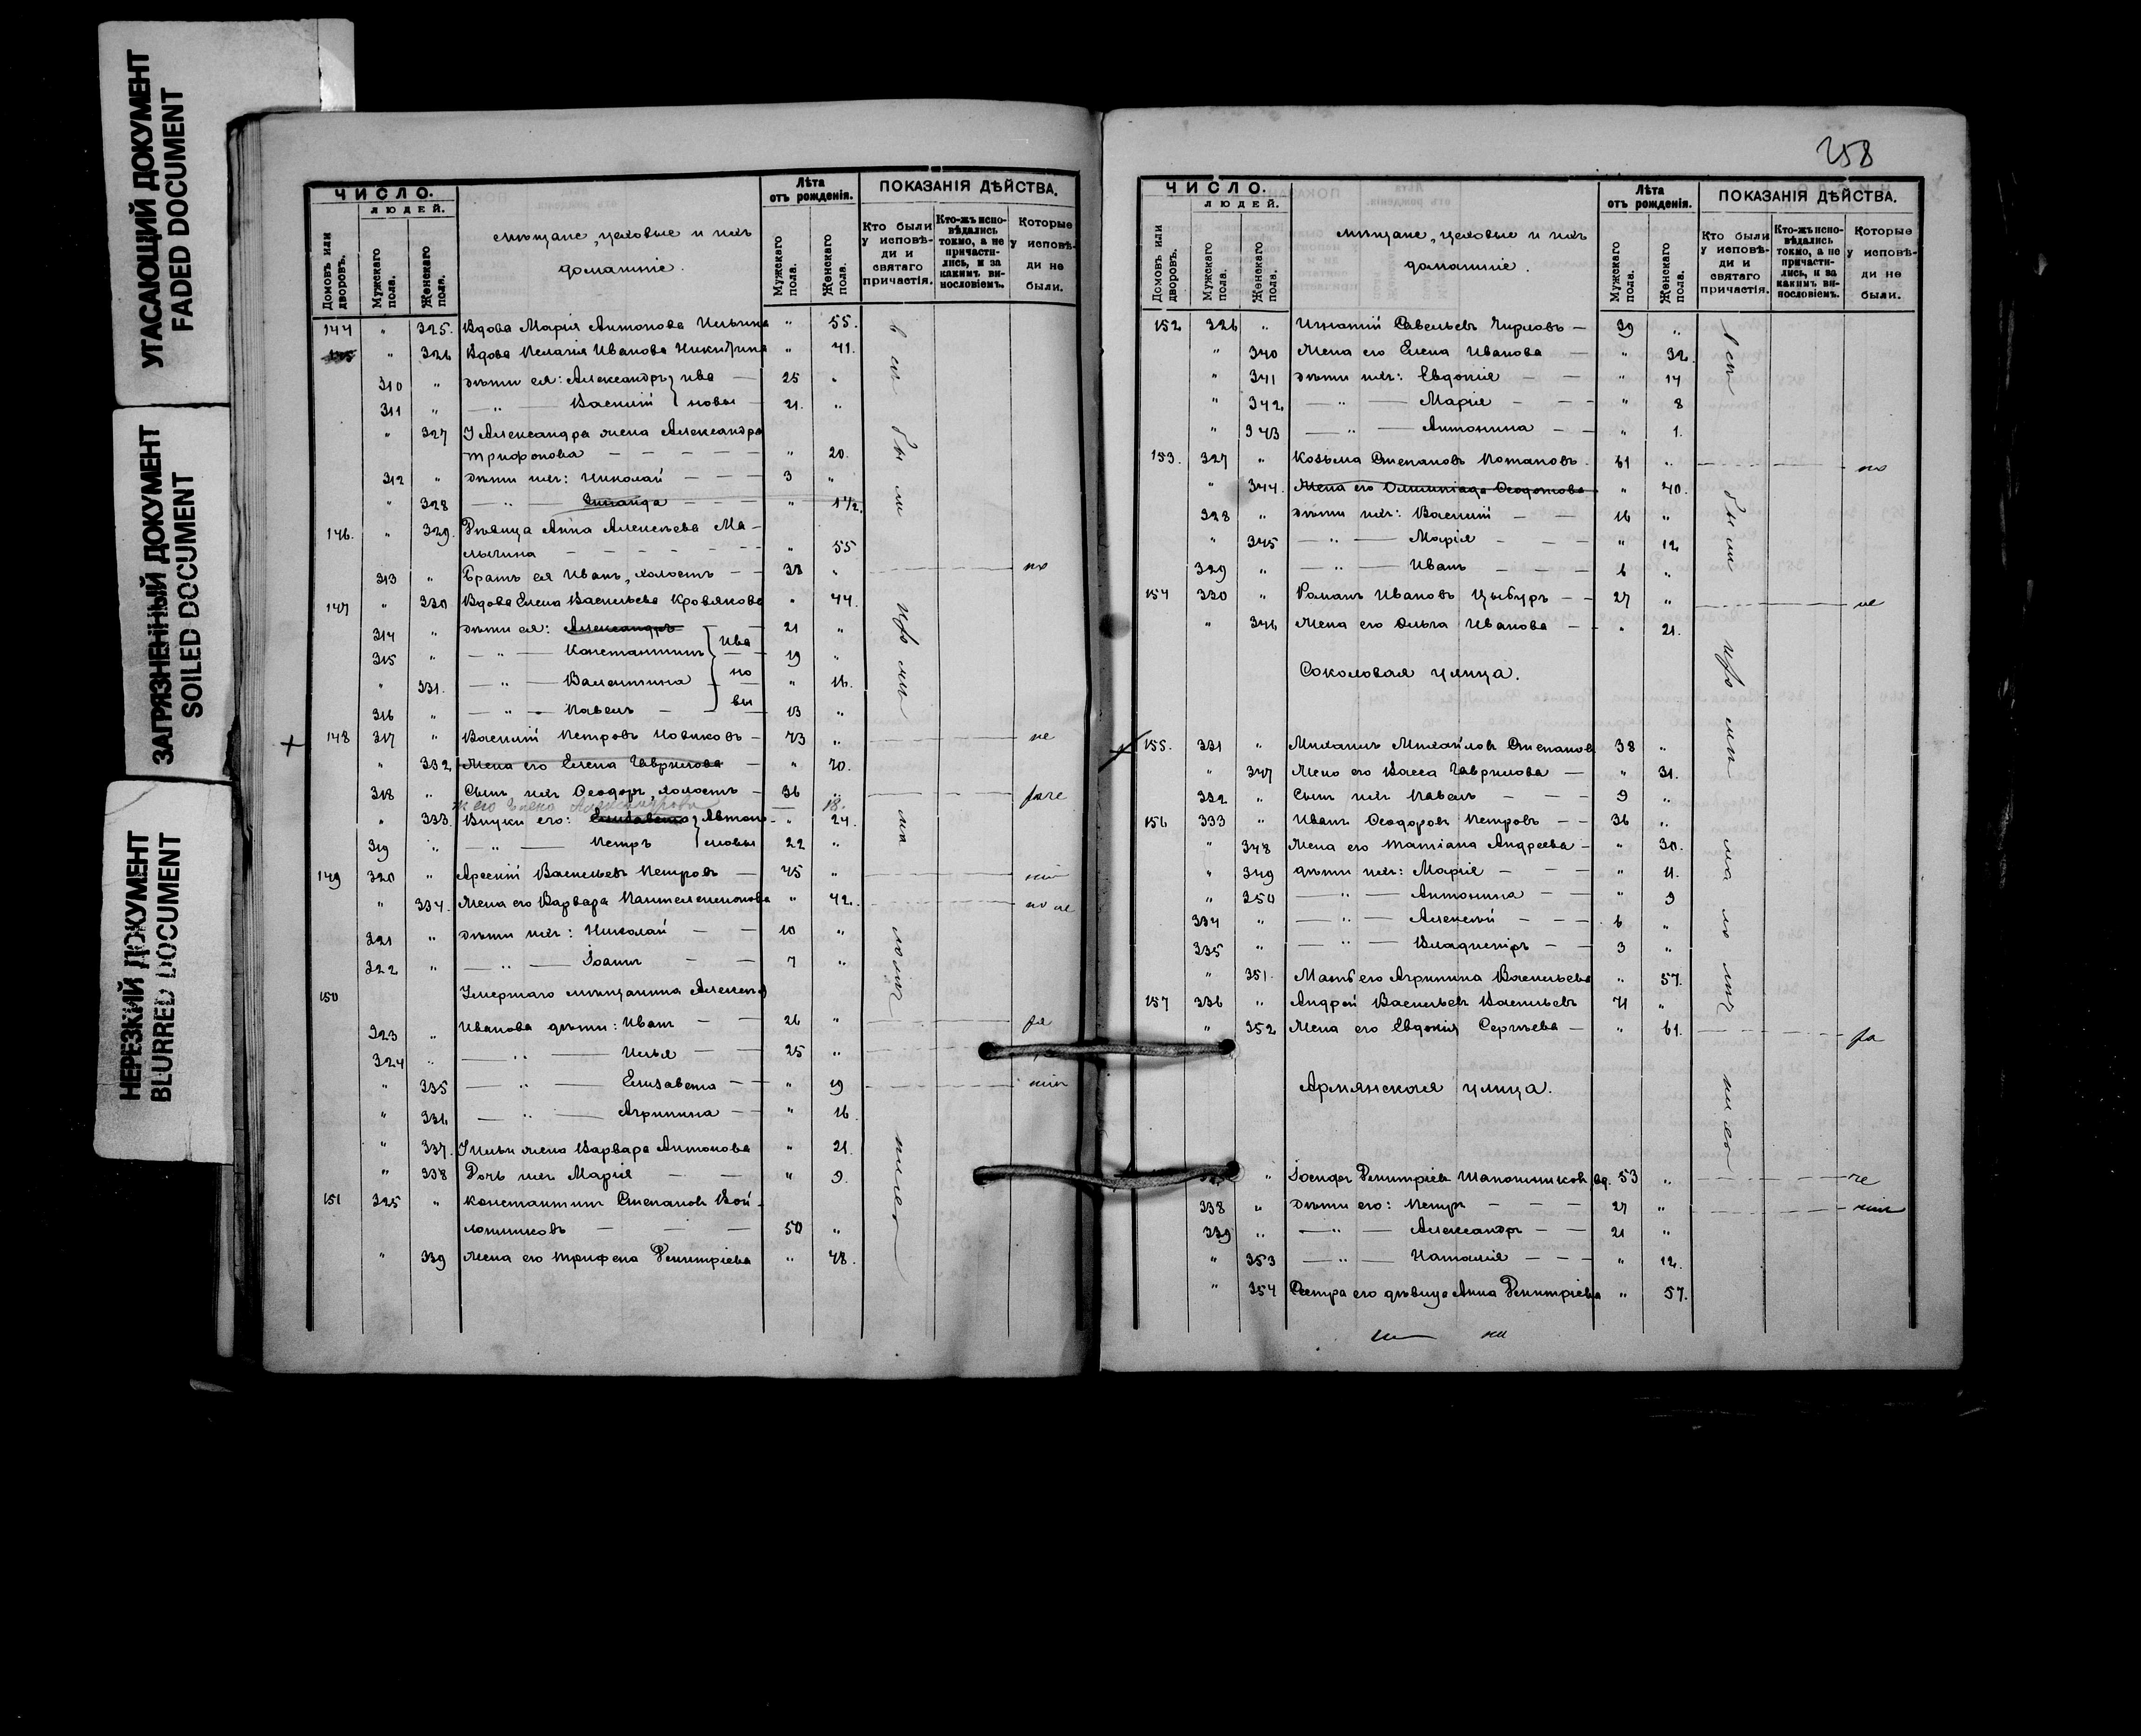 УГАСАЮЩИЙ ДОКУМЕНТ
FADED DOCUMENT
ЗАГРЯЗНЕННЫЙ ДОКУМЕНТ
SOILED DOCUMENT
НЕРЕЗКИЙ ДОКУМЕНТ
BLURRED DOCUMENT
ЧИСЛО.
ЛЮДЕЙ.
Домовъ или дворовъ.
Мужскаго пола.
Женскаго пола.
Мѣщане, цеховые и ихъ
домашніе.
Лѣта
отъ рожденія.
Мужскаго пола.
Женскаго пола.
ПОКАЗАНІЯ ДѢЙСТВА.
Кто были у исповѣди и святаго причастія.
Кто-жъ исповѣдались токмо, а не причастились, и за какимъ винословіемъ.
Которые у исповѣди не были.
144 " 325. Вдова Марія Антонова Ильина " 55.
" 326 Вдова Пелагія Иванова Никитина " 41.
310 " дѣти ея: Александръ } Ива — 25 "
311 " — " — Василій } новы — 21. "
" 327 У Александра жена Александра
Трифонова — " 20.
312 " дѣти ихъ: Николай — 3 "
" 328 — " — " 1½.
146. " 329. Дѣвица Анна Алексѣева Ма-
" 55
313 " Братъ ея Иванъ, холостъ — 38 "
147 " 330 Вдова Елена Васильева Кровякова " 44.
314 " дѣти ея: Александръ — 21 "
315 " — " — Константинъ } Ива 19 "
" 331. — " — Валентина } но " 16.
316 " — " — Павелъ } вы 13 "
148 317 " Василій Петровъ Новиковъ — 73 " не
" 332 Жена его Елена Гаврилова — " 70.
318 " Сынъ ихъ Ѳеодоръ, холостъ — 36 "
ж его Елена Александрова 18.
" 333. Внуки его: Елисавета } Автоно- " 24.
319 " — " — Петръ } мовы 22 "
149 320 " Арсеній Васильевъ Петровъ — 45 "
" 334. Жена его Варвара Пантелеимонова " 42.
321 " дѣти ихъ: Николай — 10 "
322 " — " — Іоаннъ — 7 "
150 Умершаго мѣщанина Алексѣя
323 " Иванова дѣти: Иванъ — 26 "
324 " — " — Илья — 25 "
" 335 — " — Елизавета — " 19
" 336 — " — Агрипина — " 16
" 337. У Ильи жена Варвара Антонова " 21.
" 338 Дочь ихъ Марія — " 9.
151 325 " Константинъ Степановъ Вой-
лошниковъ — 50 "
" 339 Жена его Трифена Димитріева " 48.
258
ЧИСЛО.
ЛЮДЕЙ.
Домовъ или дворовъ.
Мужскаго пола.
Женскаго пола.
Мѣщане, цеховые и ихъ
домашніе.
Лѣта
отъ рожденія.
Мужскаго пола.
Женскаго пола.
ПОКАЗАНІЯ ДѢЙСТВА.
Кто были у исповѣди и святаго причастія.
Кто-жъ исповѣдались токмо, а не причастились, и за какимъ винословіемъ.
Которые у исповѣди не были.
152 326 " Игнатій Савельевъ Чирковъ — 39 "
" 340 Жена его Елена Иванова — " 32.
" 341 дѣти ихъ: Евдокія — " 14
" 342. — " — Марія — " 8
" 343 — " — Антонина — " 1.
153. 327 " Козьма Степановъ Потаповъ 61 " по
" 344. Жена его Олимпіада Ѳедотова " 40.
328 " дѣти ихъ: Василій — 16 "
" 345 — " — Марія — " 12
329 " — " — Иванъ — 6 "
154 330 " Романъ Ивановъ Цыбуръ — 27 "
" 346 Жена его Ольга Иванова — " 21.
Соколовая улица.
155. 331 " Михаилъ Михайловъ Степановъ 38 "
" 347 Жена его Васса Гаврилова — " 31.
332 " Сынъ ихъ Павелъ — 9 "
156 333 " Иванъ Ѳеодоровъ Петровъ — 36 "
" 348 Жена его Татіана Андреева — " 30.
" 349 дѣти ихъ: Марія — " 11.
" 350 — " — Антонина — " 9
334 " — " — Алексѣй — 6 "
335 " — " — Владиміръ — 3 "
" 351. Мать его Агрипина Васильева " 57.
157 336 " Андрей Васильевъ Васильевъ 71 "
" 352 Жена его Евдокія Сергѣева — " 61. ра
Армянская улица.
" Іосифъ Димитріевъ Шапошниковъ, вд. 53 " че
338 " дѣти его: Петръ — 27 "
339 " — " — Александръ — 21 "
" 353 — " — Наталія — " 12.
" 354 Сестра его дѣвица Анна Димитріева " 57.